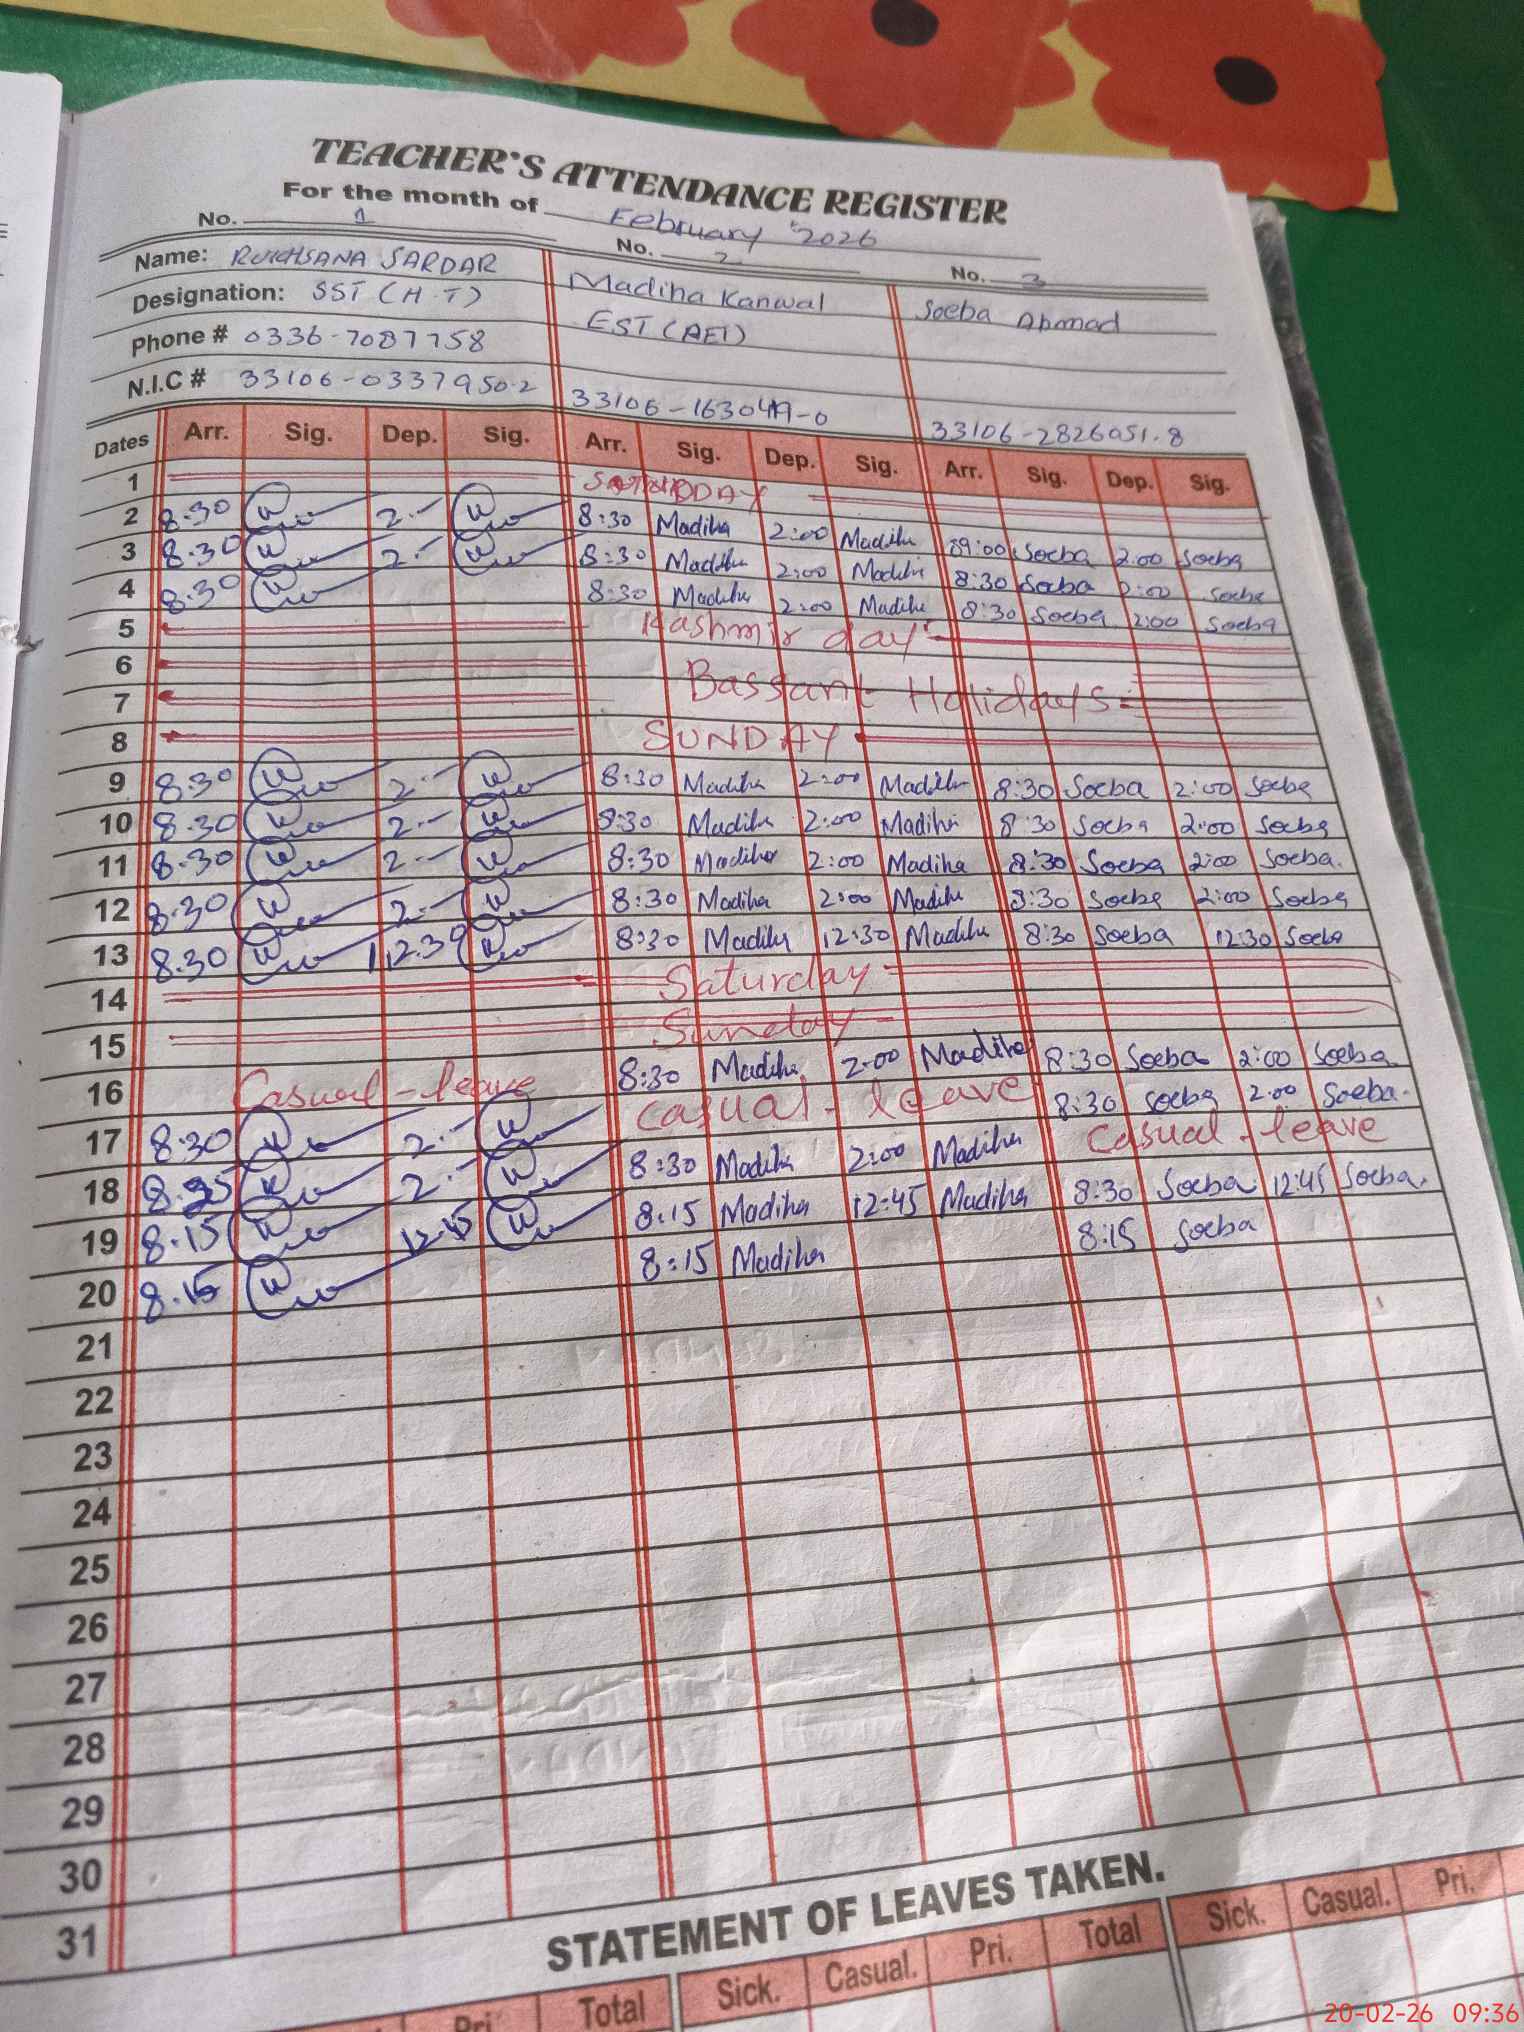 TEACHER'S ATTENDANCE REGISTER
For the month of February 2026
No. 1 No. 2 No. 3
Name: RUKHSANA SARDAR Madiha Kanwal Soeba Ahmad
Designation: SST (H.T) EST (AEI)
Phone # 0336-7087758
N.I.C # 33106-0337950-2 33106-163049-0 33106-2826051-8
Dates Arr. Sig. Dep. Sig. Arr. Sig. Dep. Sig. Arr. Sig. Dep. Sig.
1
2 8.30 2.- 8:30 Madiha 2:00 Madiha 09:00 Soeba 2:00 Soeba
3 8.30 2.- 8:30 Madiha 2:00 Madiha 8:30 Soeba 2:00 Soeba
4 8.30 8:30 Madiha 2:00 Madiha 8:30 Soeba 2:00 Soeba
5 Kashmir day
6
7 Bassant Holidays
8 SUNDAY
9 8.30 2.- 8:30 Madiha 2:00 Madiha 8:30 Soeba 2:00 Soeba
10 8.30 2.- 8:30 Madiha 2:00 Madiha 8:30 Soeba 2:00 Soeba
11 8.30 2.- 8:30 Madiha 2:00 Madiha 8:30 Soeba 2:00 Soeba.
12 8.30 2.- 8:30 Madiha 2:00 Madiha 8:30 Soeba 2:00 Soeba
13 8.30 12.30 8:30 Madiha 12:30 Madiha 8:30 Soeba 12:30 Soeba
14 Saturday
15 Sunday
16 Casual-leave 8:30 Madiha 2:00 Madiha 8:30 Soeba 2:00 Soeba
17 8.30 2.- Casual-leave 8:30 Soeba 2:00 Soeba.
18 2.- 8:30 Madiha 2:00 Madiha Casual-leave
19 8.15 12.45 8:15 Madiha 12:45 Madiha 8:30 Soeba 12:45 Soeba.
20 8.15 8:15 Madiha 8:15 Soeba
21
22
23
24
25
26
27
28
29
30
31
STATEMENT OF LEAVES TAKEN.
Pri. Total Sick. Casual. Pri. Total Sick. Casual. Pri.
20-02-26 09:36